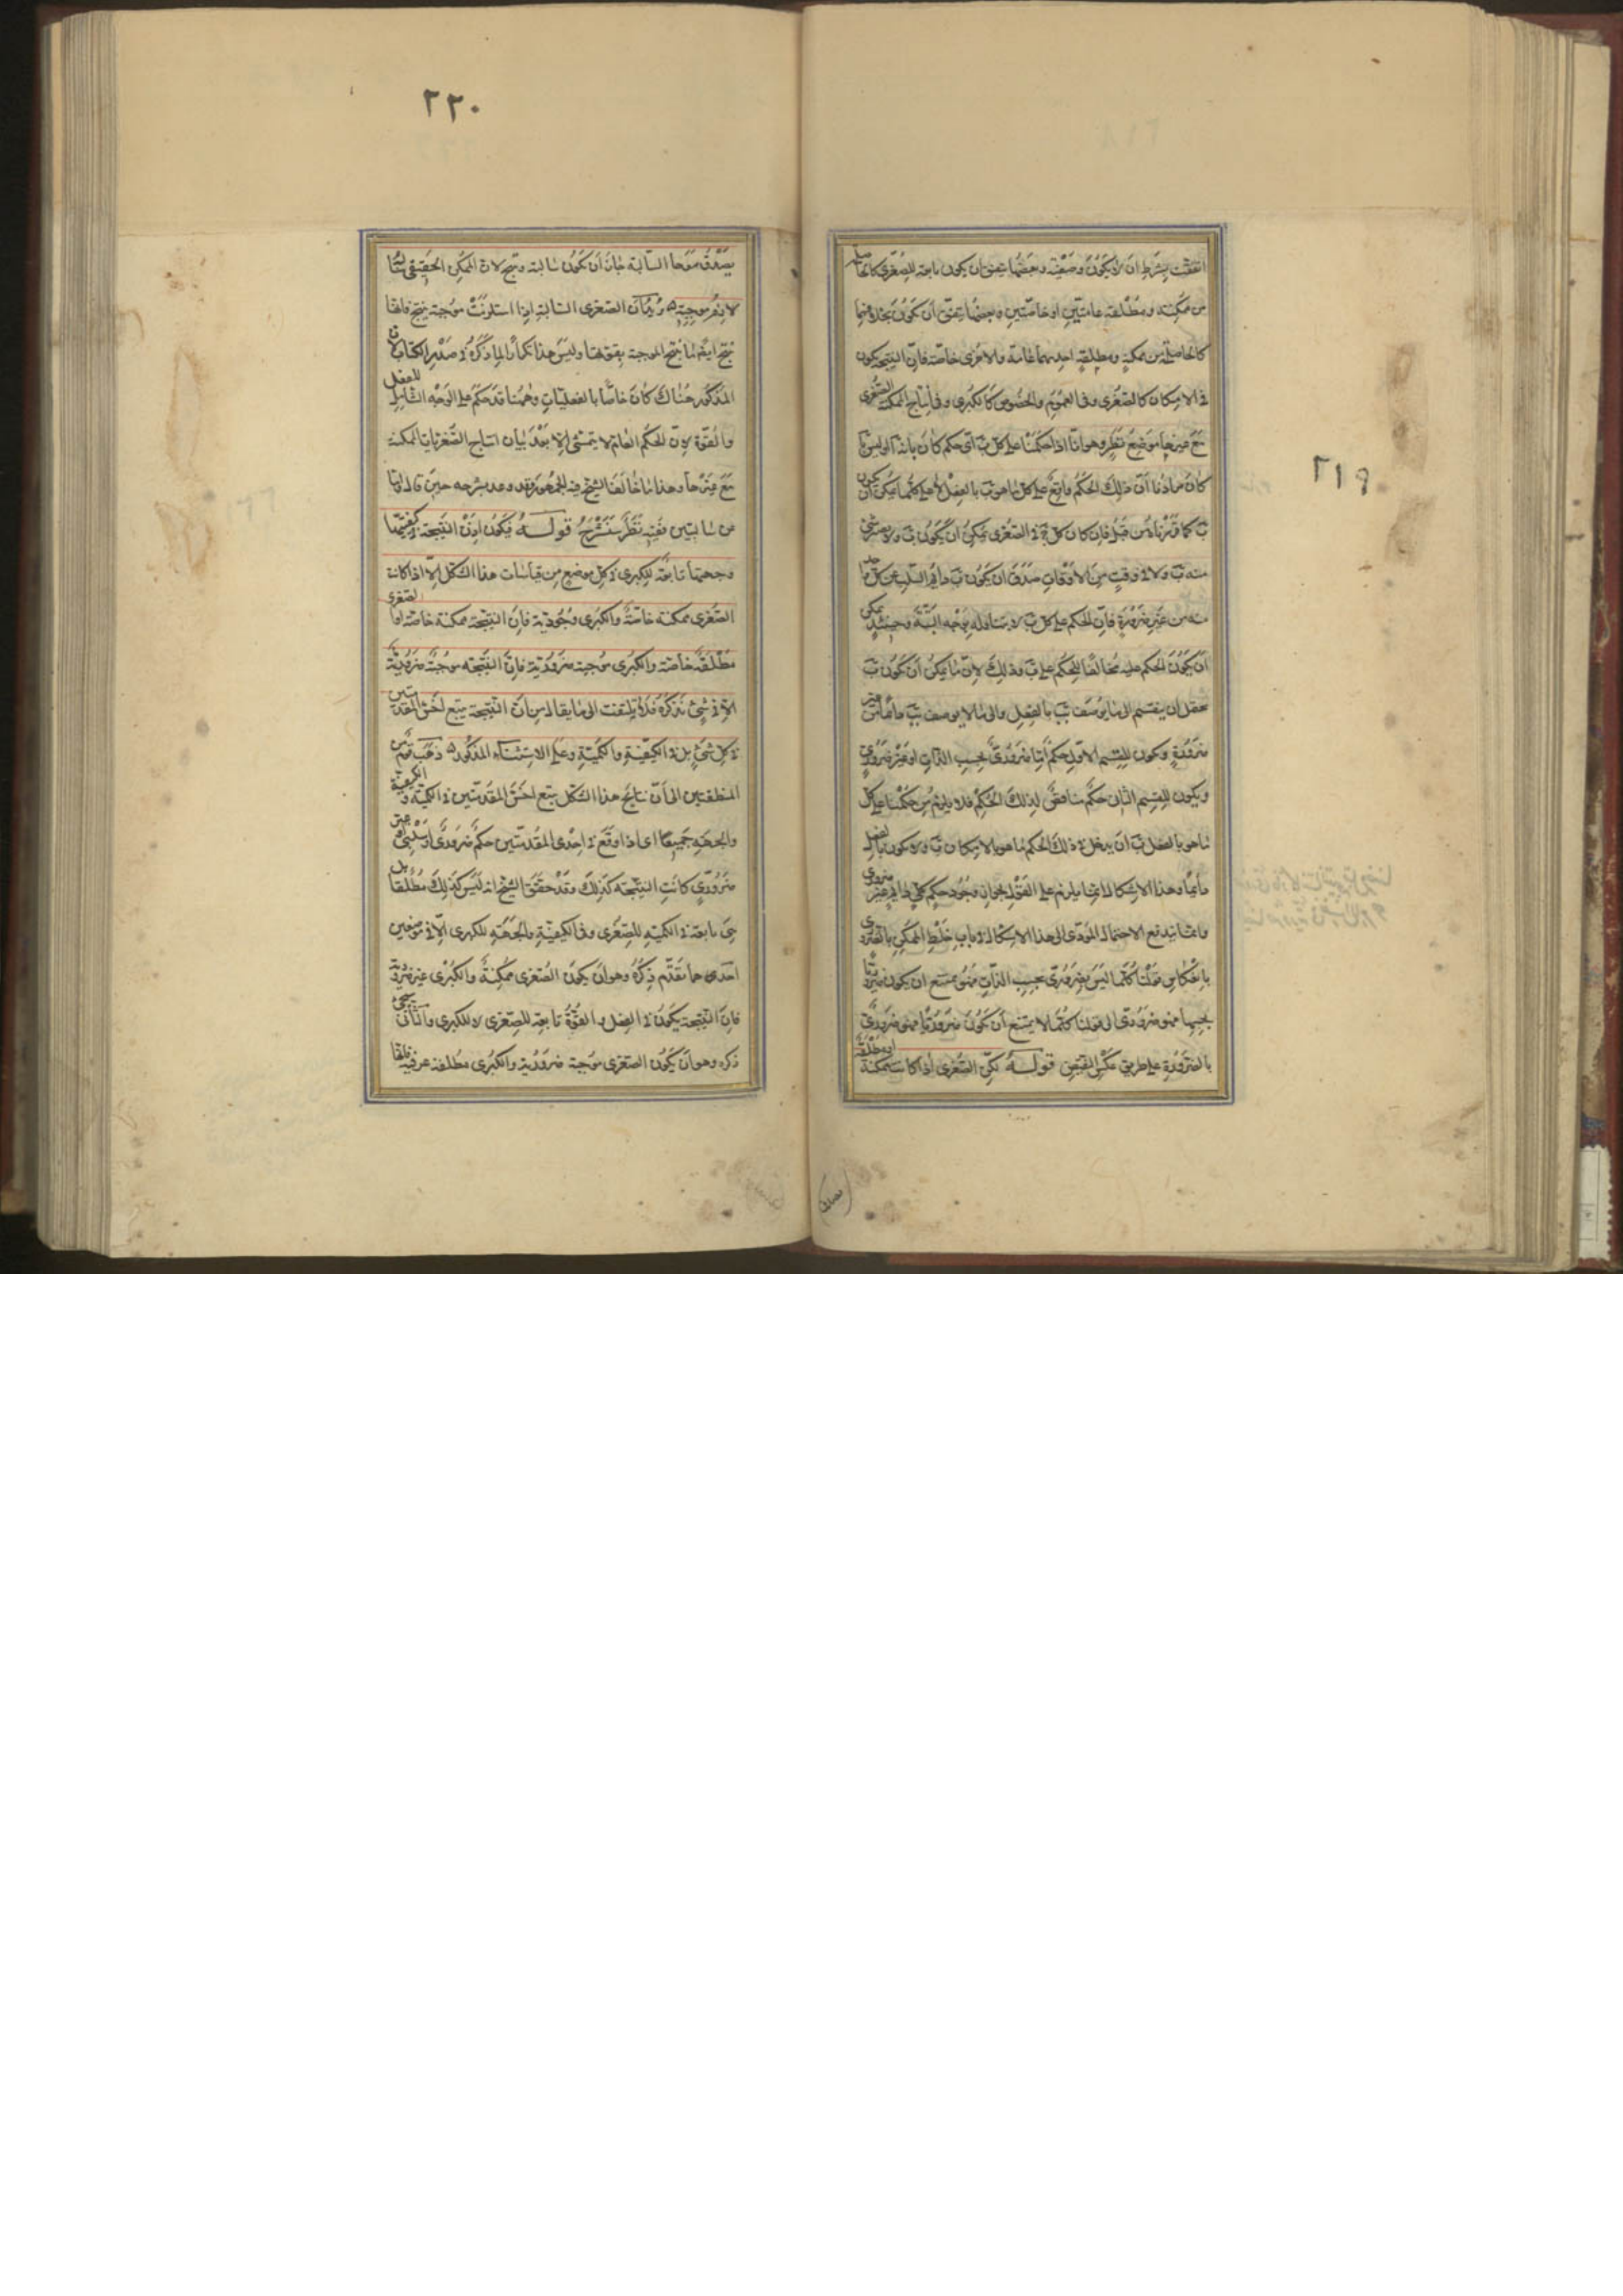 ٢١٩
اتفقت بشرط ان لا يكون وصفية وبعضها يتفق ان يكون تابعة للصغرى كالحاصلة
من ممكنة ومطلقة عامتين او خاصتين وبعضها يتفق ان يكون بخلافهما
كالحاصلة من ممكنة ومطلقة احديهما عامة والاخرى خاصة فان النتيجة يكون
فى الامكان كالصغرى وفى العموم والخصوص كالكبرى وفى انتاج الممكنة الصغرى
مع غيرها موضع نظر وهو انا اذا حكمنا على كل ب اى حكم كان بانه ا او ليس ا
كان مرادنا ان ذلك الحكم واقع على كل ما هو ب بالفعل لا على كل ما يمكن ان يكون
ب كما قررناه من قبل فان كان كل ج فى الصغرى يمكن ان يكون ب ولا يصير شئ
منه ب ولا فى وقت من الاوقات صدق ان يكون ب دائم السلب عن كل واحد
منه من غير ضرورة فان الحكم على كل ب لا يتناوله بوجه البتة وحينئذ يمكن
ان يكون الحكم عليه مخالفا للحكم على ب وذلك لان ما يمكن ان يكون ب
يحتمل ان ينقسم الى ما يوصف بب بالفعل والى ما لا يوصف بب دائما من غير
ضرورة ويكون للقسم الاول حكم اما ضرورى بحسب الذات او غير ضرورى
ويكون للقسم الثانى حكم مناقض لذلك الحكم فلا يلزم من حكمنا على كل
ما هو بالفعل ب ان يدخل فى ذلك الحكم ما هو بالامكان ب ولا يكون بالفعل
دائما وهذا الاشكال انما يلزم على القول بجواز وجود حكم كلى دائم غير ضرورى
وانما يندفع الاحتمال المؤدى الى هذا الاشكال فى باب خلط الممكن بالضرورى
بانعكاس قولنا كلما ليس بضرورى بحسب الذات فهو ممتنع ان يكون ضروريا
بحسبها فهو ضرورى الى قولنا كلما لا يمتنع ان يكون ضروريا فهو ضرورى
بالضرورة على طريق عكس النقيض قوله لكن الصغرى اذا كانت ممكنة او مطلقة
٢٢٠
يصدق معها السالبة جاز ان يكون سالبة وينتج لان الممكن الحقيقى سالبه
لازم موجبه وبيان الصغرى السالبة اذا استلزمت موجبة ينتج فانها
تنتج ايضا ما ينتج الموجبة بقوتها وليس هذا تكرارا لما ذكره فى صدر الكتاب لان
المذكور هناك كان خاصا بالفعليات وههنا قد حكم على الوجه الشامل للفعل
والقوة لان الحكم العام لا يتمشى الا بعد بيان انتاج الصغريات الممكنة
مع غيرها وهذا مما خالف الشيخ فيه الجمهور وقد وعد بشرحه حين قال واما
من سالبتين ففيه نظر سنشرح قوله فيكون اذن النتيجة فى كيفيتها
وجهتها تابعة للكبرى فى كل موضع من قياسات هذا الشكل الا اذا كانت
الصغرى ممكنة خاصة والكبرى وجودية فان النتيجة ممكنة خاصة او الصغرى
مطلقة خاصة والكبرى موجبة ضرورية فان النتيجة موجبة ضرورية
الا فى شئ نذكره فلا تلتفت الى ما يقال من ان النتيجة يتبع اخس المقدمتين
فى كل شئ بل فى الكيفية والكمية وعلى الاستثناء المذكور ذهب قوم من
المنطقيين الى ان نتايج هذا الشكل يتبع اخس المقدمتين فى الكمية والكيفية
والجهة جميعا اى اذا وقع فى احدى المقدمتين حكم جزئى او سلبى او غير
ضرورى كانت النتيجة كذلك وقد حقق الشيخ انه ليس كذلك مطلقا بل
هى تابعة فى الكمية للصغرى وفى الكيفية والجهة للكبرى الا فى موضعين
احدهما تقدم ذكره وهو ان يكون الصغرى ممكنة والكبرى غير ضرورية
فان النتيجة يكون فى الفعل والقوة تابعة للصغرى لا للكبرى والثانى يجئ
ذكره وهو ان يكون الصغرى موجبة ضرورية والكبرى مطلقة عرفية فانها